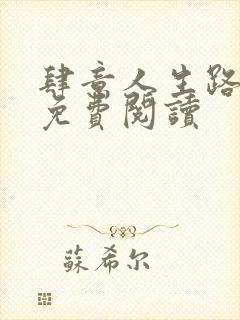 肆意人生路
免費閱讀
蘇希尔